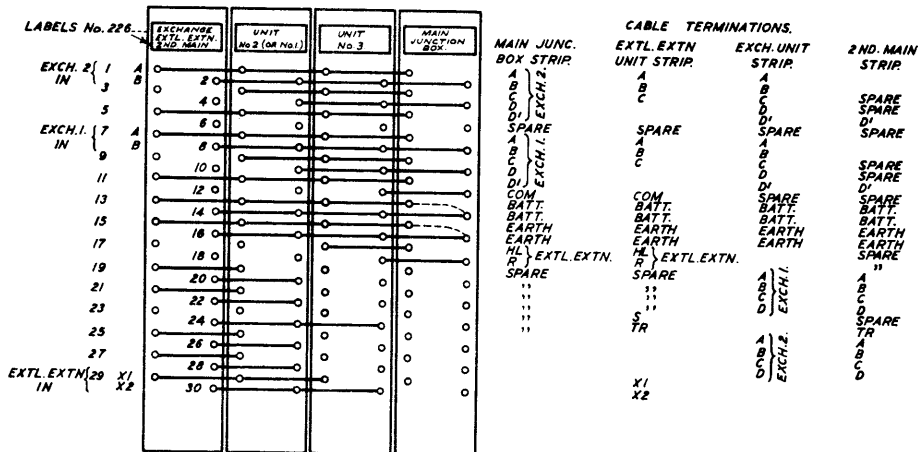 LABELS No. 226
EXCHANGE
EXTL. EXTN.
2ND. MAIN
UNIT
No 2 (OR No.1.)
UNIT
No. 3
MAIN
JUNCTION
BOX.
EXCH. 2
IN
1 A
B
2
3
4
5
6
EXCH. 1.
IN
7 A
B
8
9
10
11
12
13
14
15
16
17
18
19
20
21
22
23
24
25
26
27
28
EXTL. EXTN
IN
29 X1
X2
30
CABLE TERMINATIONS.
MAIN JUNC.
BOX STRIP.
A
B
C
D
D'
EXCH. 2.
SPARE
A
B
C
D
D'
EXCH. 1.
COM
BATT.
BATT.
EARTH
EARTH
HL
R
EXTL. EXTN.
SPARE
,,
,,
,,
,,
EXTL. EXTN
UNIT STRIP.
A
B
C
SPARE
A
B
C
COM
BATT.
BATT.
EARTH
EARTH
HL
R
EXTL. EXTN.
SPARE
,,
,,
S
TR
X1
X2
EXCH. UNIT
STRIP.
A
B
C
D
D'
SPARE
A
B
C
D
D'
SPARE
BATT.
BATT.
EARTH
EARTH
A
B
C
D
EXCH. 1.
A
B
C
D
EXCH. 2.
2ND. MAIN
STRIP.
SPARE
SPARE
D'
SPARE
SPARE
SPARE
D'
SPARE
BATT.
BATT.
EARTH
EARTH
SPARE
,,
A
B
C
D
SPARE
TR
A
B
C
D